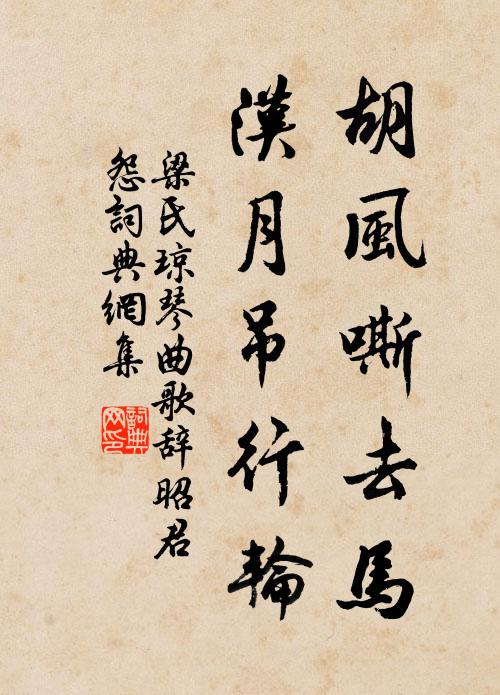 胡風嘶去馬
漢月吊行輪
梁氏琼琴曲歌辞昭君
怨詞典網集
詞典
网印